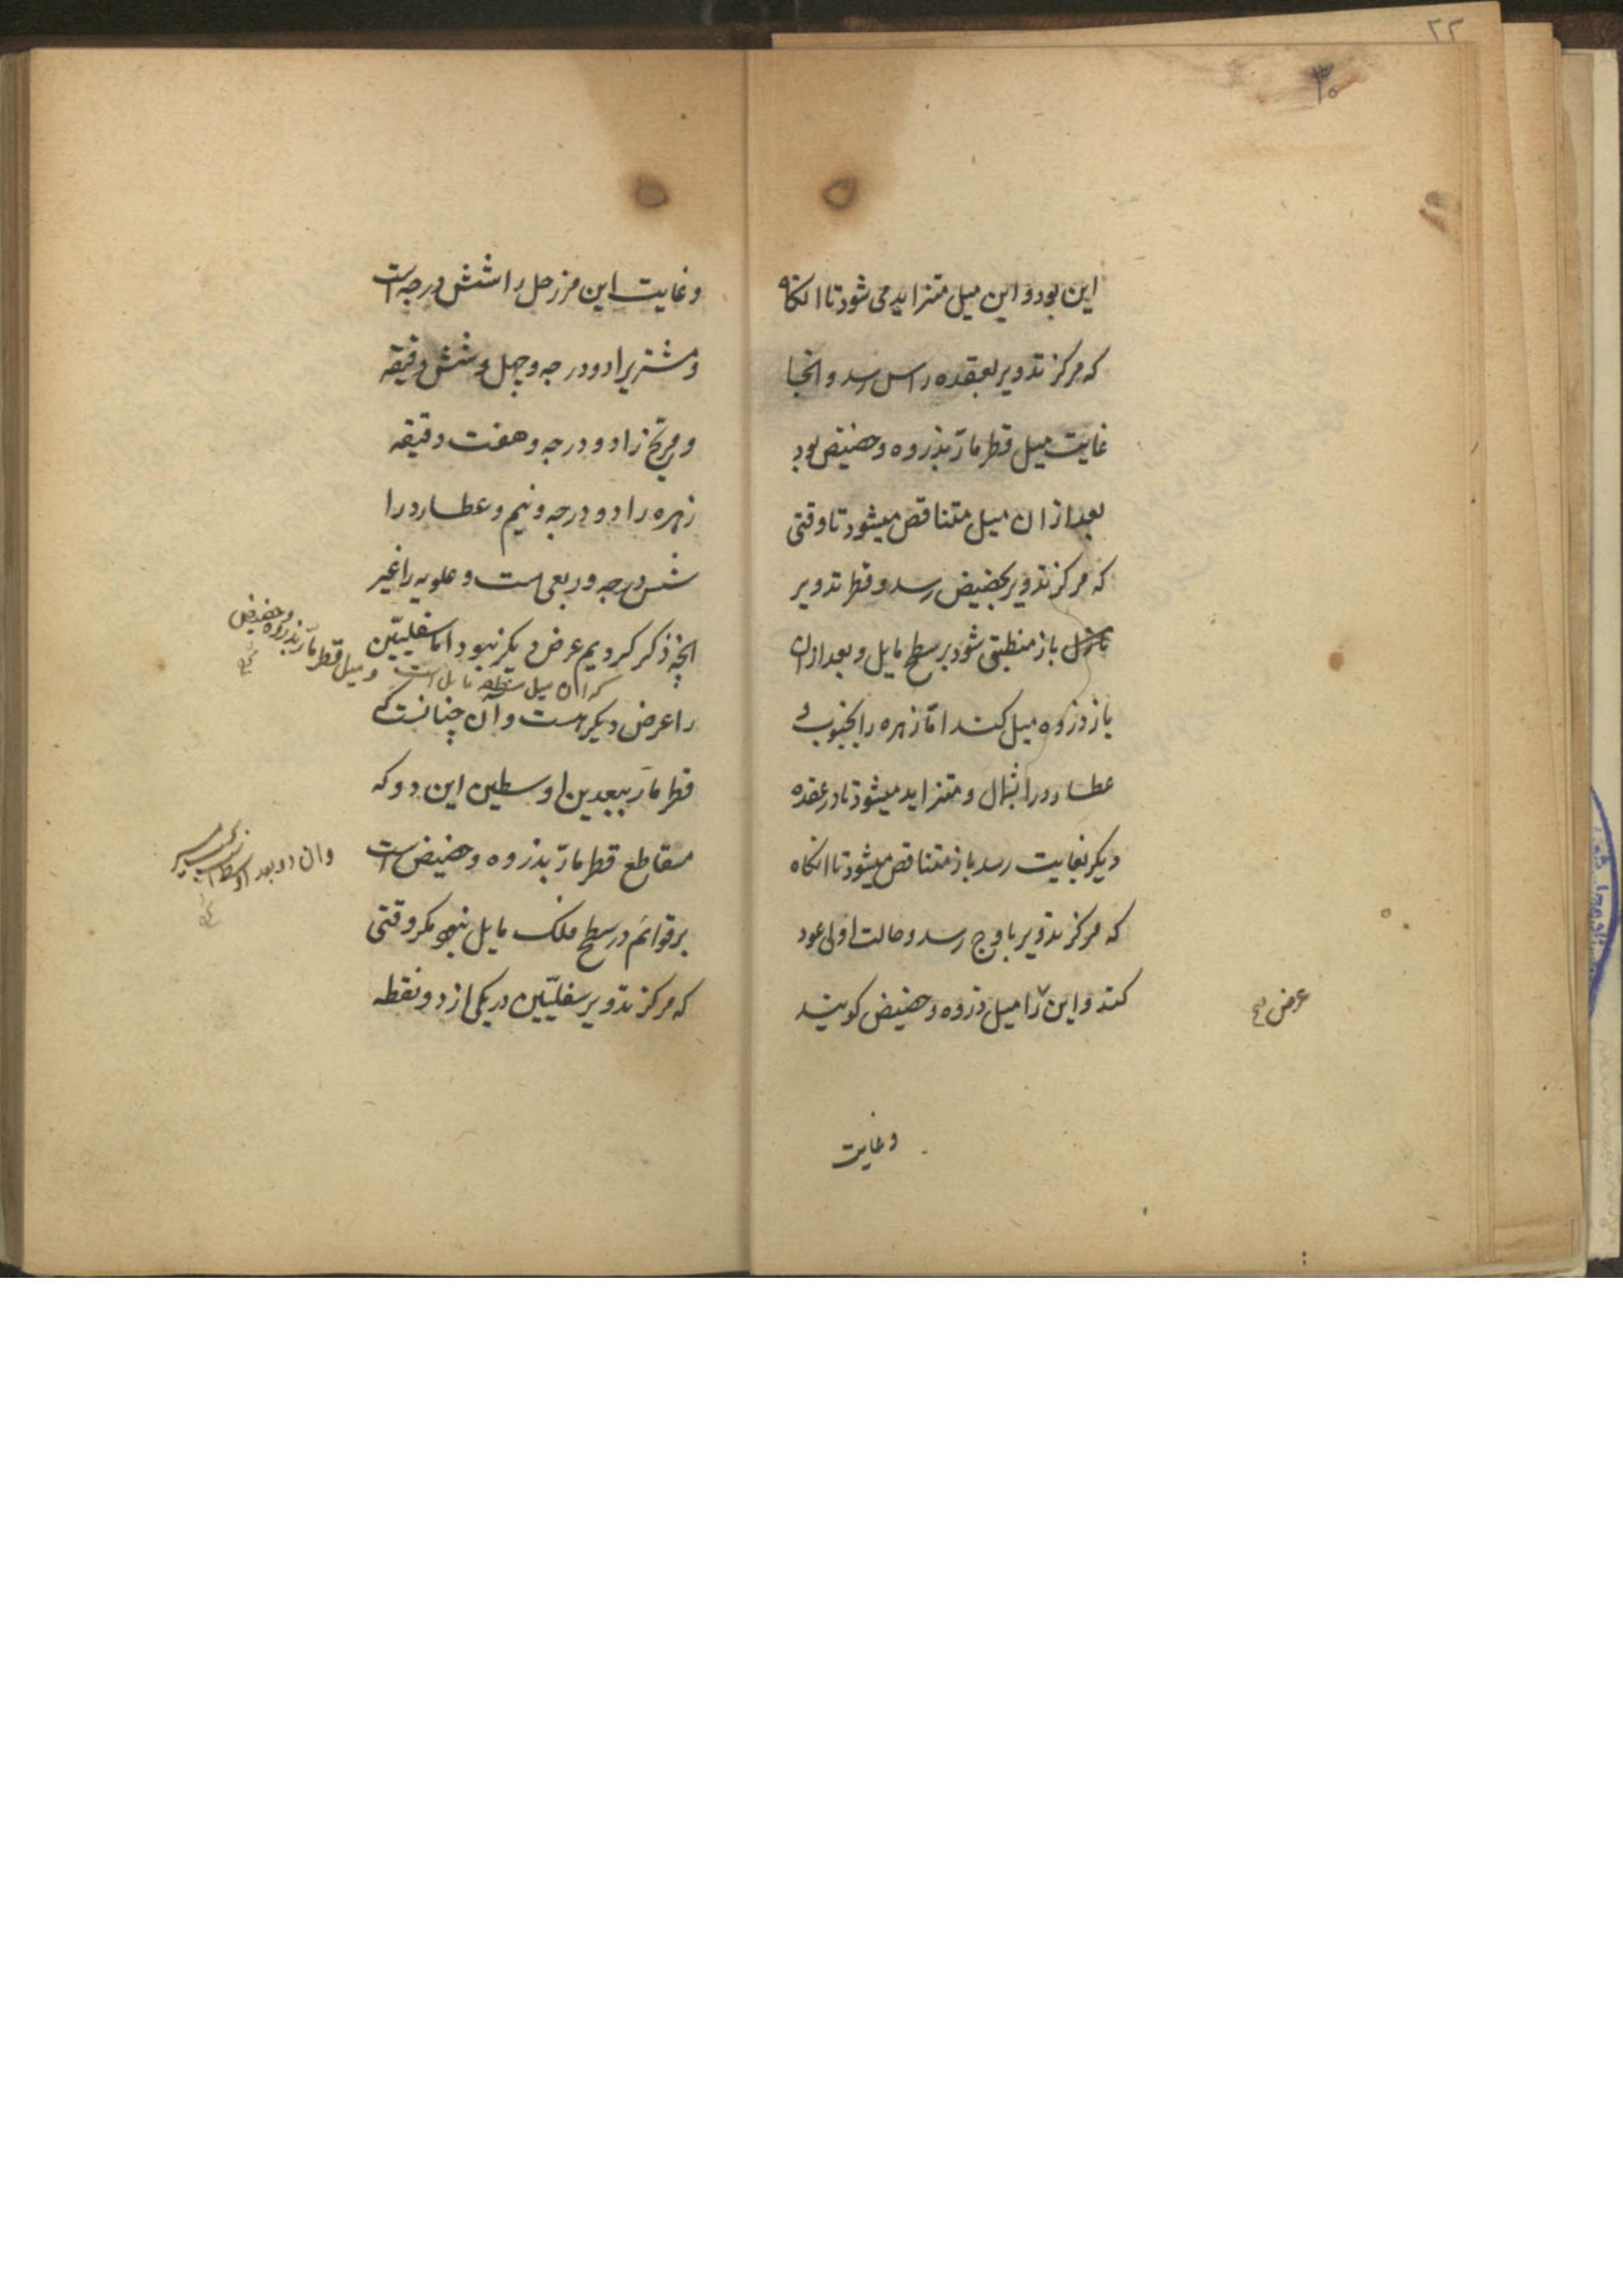 ۲۲
۳۰
این بود و این میل متزاید می شود تا انکاه
که مرکز تدویر بعقده راس رسد و انجا
غایت میل قطر مارّ بذروه و حضیض بود
بعد از ان میل متناقص میشود تا وقتی
که مرکز تدویر بحضیض رسد و قطر تدویر
باز منطبق شود بر سطح مایل و بعد ازان
باز ذروه میل کند امّا زهره را بجنوب و
عطارد را بشمال و متزاید میشود تا در عقده
دیکر بغایت رسد باز متناقص میشود تا انکاه
که مرکز تدویر باوج رسد و حالت اولی عود
کند و این را میل ذروه و حضیض کویند
عرض صح
وغایت
وغایت این مر زحل را شش درجه است
و مشتریرا دو درجه و چهل و شش دقیقه
و مریخ را دو درجه و هفت دقیقه
زهره را دو درجه و نیم و عطارد را
شش درجه و ربعی است و علویه را غیر
انچه ذکر کردیم عرض دیکر نبود اما سفلیّین
و میل قطر مارّ بذروه و حضیض
که ان میل مایل است
را عرض دیکر هست و آن چنانست که
قطر مارّ ببعدین اوسطین این دو که
مقاطع قطر مارّ بذروه و حضیض است
وان دو بعد اوسط
بر قوائم در سطح فلک مایل نبود مکر وقتی
که مرکز تدویر سفلیّین در یکی از دو نقطه